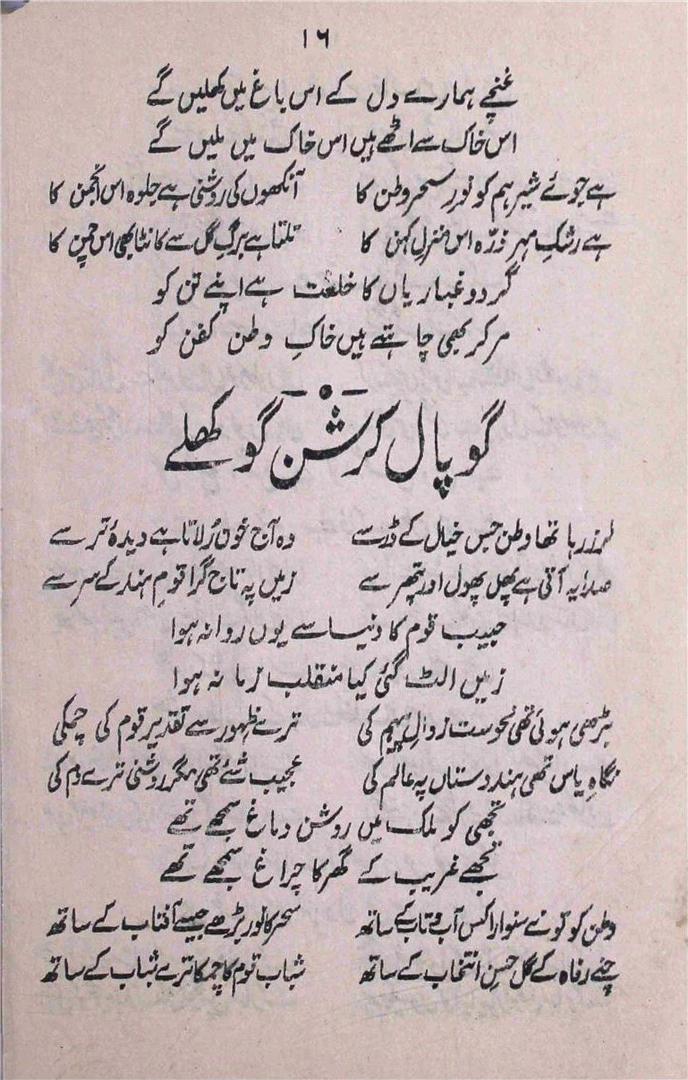 ۱۶
غنچے ہمارے دل کے اس باغ میں کھلیں گے
اس خاک سے اٹھے ہیں اس خاک میں ملیں گے
ہے جوئے شیر ہم کو نور سحر وطن کا آنکھوں کی روشنی ہے جلوہ اس انجمن کا
ہے رشک مہر ذرّہ اس منزل کہن کا تلتا ہے برگ گل سے کانٹا بھی اس چمن کا
گرد و غبار یاں کا خلعت ہے اپنے تن کو
مر کر بھی چاہتے ہیں خاکِ وطن کفن کو
گوپال کرشن گوکھلے
لرز رہا تھا وطن جس خیال کے ڈر سے وہ آج خون رُلاتا ہے دیدۂ تر سے
صدا یہ آتی ہے پھل پھول اور پتھر سے زمیں پہ تاج گرا قومِ ہند کے سر سے
حبیب قوم کا دنیا سے یوں روانہ ہوا
زمیں الٹ گئی کیا منقلب زمانہ ہوا
بڑھی ہوئی تھی نحوست زوالِ پیہم کی ترے ظہور سے تقدیر قوم کی چمکی
نگاہِ یاس تھی ہندوستاں پہ عالم کی عجیب شئے تھی مگر روشنی ترے دم کی
تجھی کو ملک میں روشن دماغ سمجھے تھے
تجھے غریب کے گھر کا چراغ سمجھے تھے
وطن کو تو نے سنوارا کس آب و تاب کے ساتھ سحر کا نور بڑھے جیسے آفتاب کے ساتھ
چنے رفاہ کے گل حسنِ انتخاب کے ساتھ شباب قوم کا چمکا ترے شباب کے ساتھ